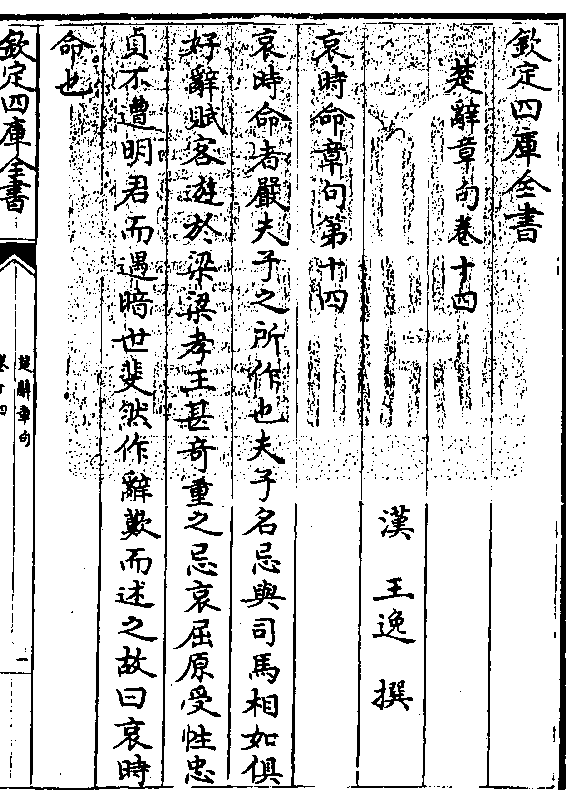 欽定四庫全書
楚辭章句卷十四
漢 王逸 撰
哀時命章句第十四
哀時命者嚴夫子之所作也夫子名忌與司馬相如俱
好辭賦客遊於梁梁孝王甚奇重之忌哀屈原受性忠
貞不遭明君而遇暗世斐然作辭歎而述之故曰哀時
命也
欽定四庫全書
楚辭章句
卷十四
一